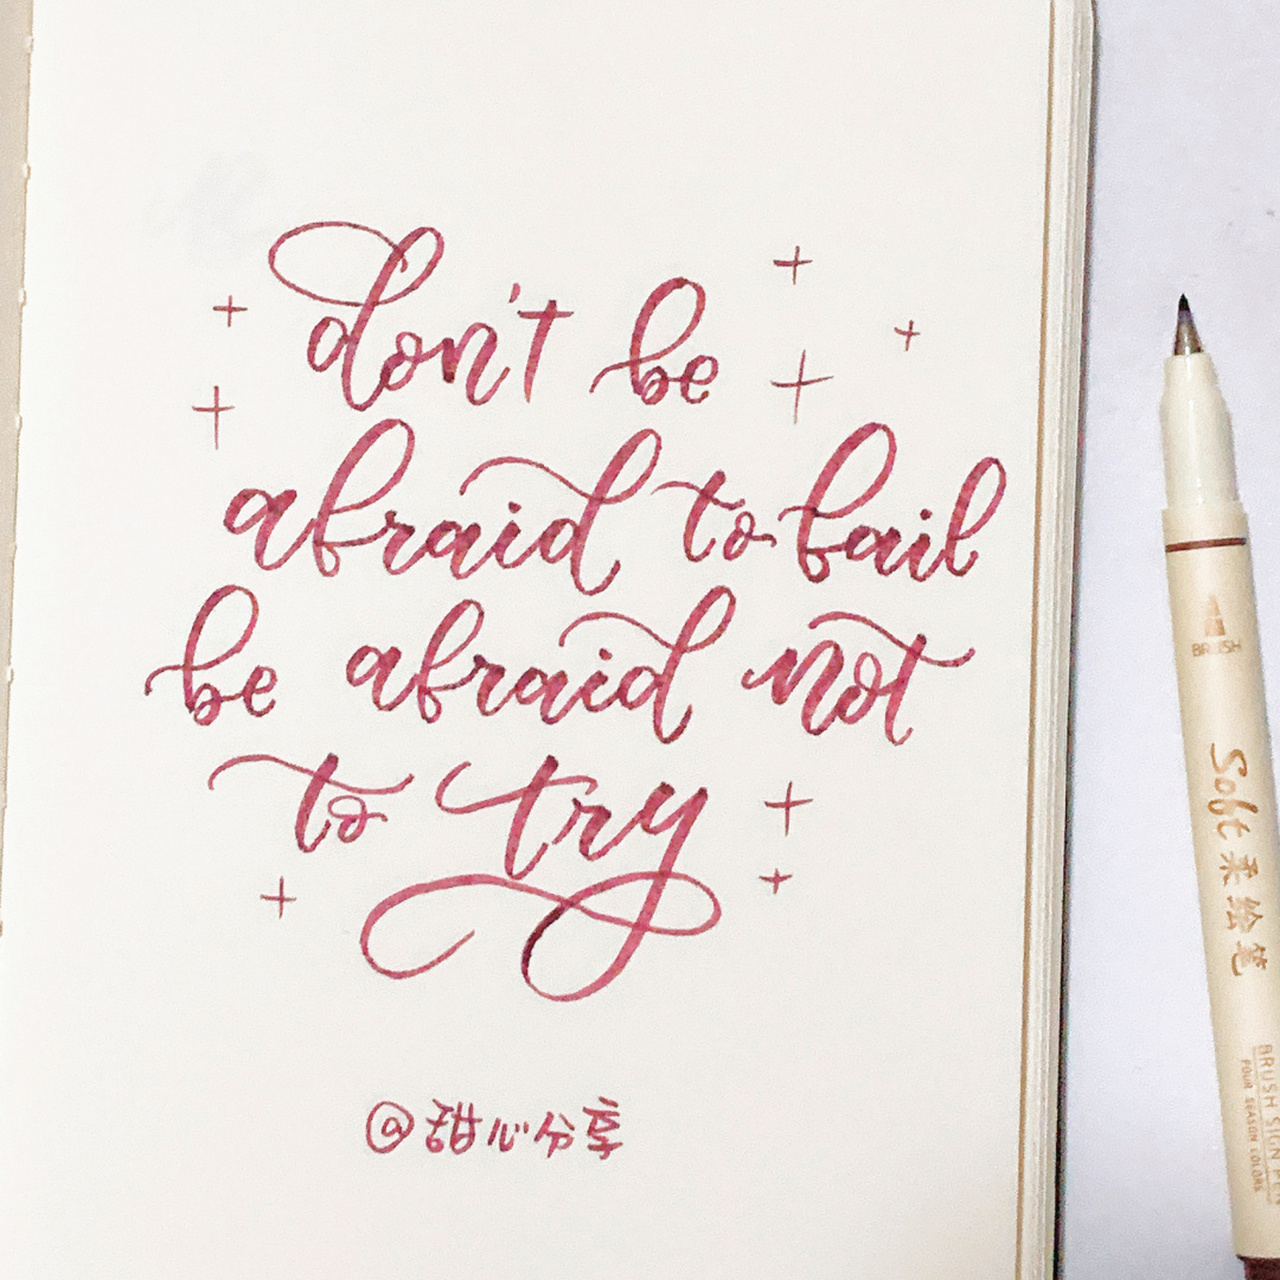 don't be
afraid to fail
be afraid not
to try
@甜心分享
BRUSH
Soft 柔绘笔
BRUSH SIGN PEN
FOUR SEASON COLORS